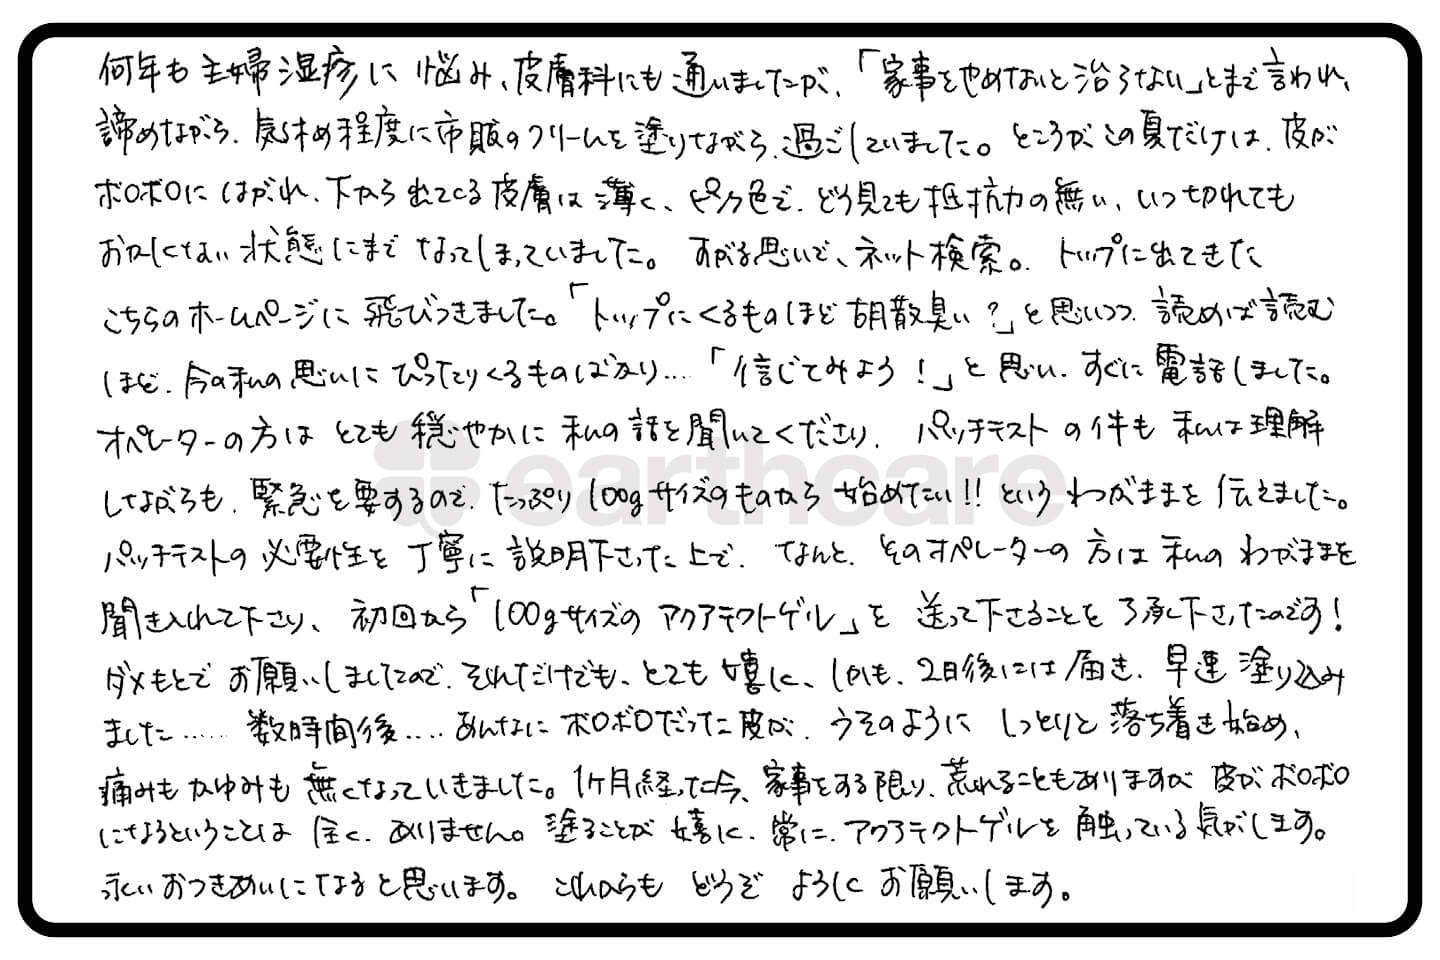 何年も主婦湿疹に悩み、皮膚科にも通いましたが、「家事をやめないと治らない」とまで言われ、
諦めながら、気休め程度に市販のクリームを塗りながら、過ごしていました。ところがこの夏だけは、皮が
ボロボロにはがれ、下から出てくる皮膚は薄く、ピンク色で、どう見ても抵抗力の無い、いつ切れても
おかしくない状態にまでなってしまっていました。すがる思いで、ネット検索。トップに出てきた
こちらのホームページに飛びつきました。「トップにくるものほど胡散臭い?」と思いつつ、読めば読む
ほど、今の私の思いにぴったりくるものばかり....「信じてみよう!」と思い、すぐに電話しました。
オペレーターの方はとても穏やかに私の話を聞いてくださり、パッチテストの件も私は理解
しながらも、緊急を要するので、たっぷり100gサイズのものから始めたい!!というわがままを伝えました。
パッチテストの必要性を丁寧に説明下さった上で、なんと、そのオペレーターの方は私のわがままを
聞き入れて下さり、初回から「100gサイズのアクアテクトゲル」を送って下さることを了承下さったのです!
ダメもとでお願いしましたので、それだけでも、とても嬉しく、しかも、2日後には届き、早速塗り込み
ました......数時間後....あんなにボロボロだった皮が、うそのようにしっとりと落ち着き始め、
痛みもかゆみも無くなっていきました。1ケ月経った今、家事をする限り、荒れることもありますが皮がボロボロ
になるということは全く、ありません。塗ることが嬉しく、常に、アクアテクトゲルを触っている気がします。
永いおつきあいになると思います。これからもどうぞよろしくお願いします。
earthcare